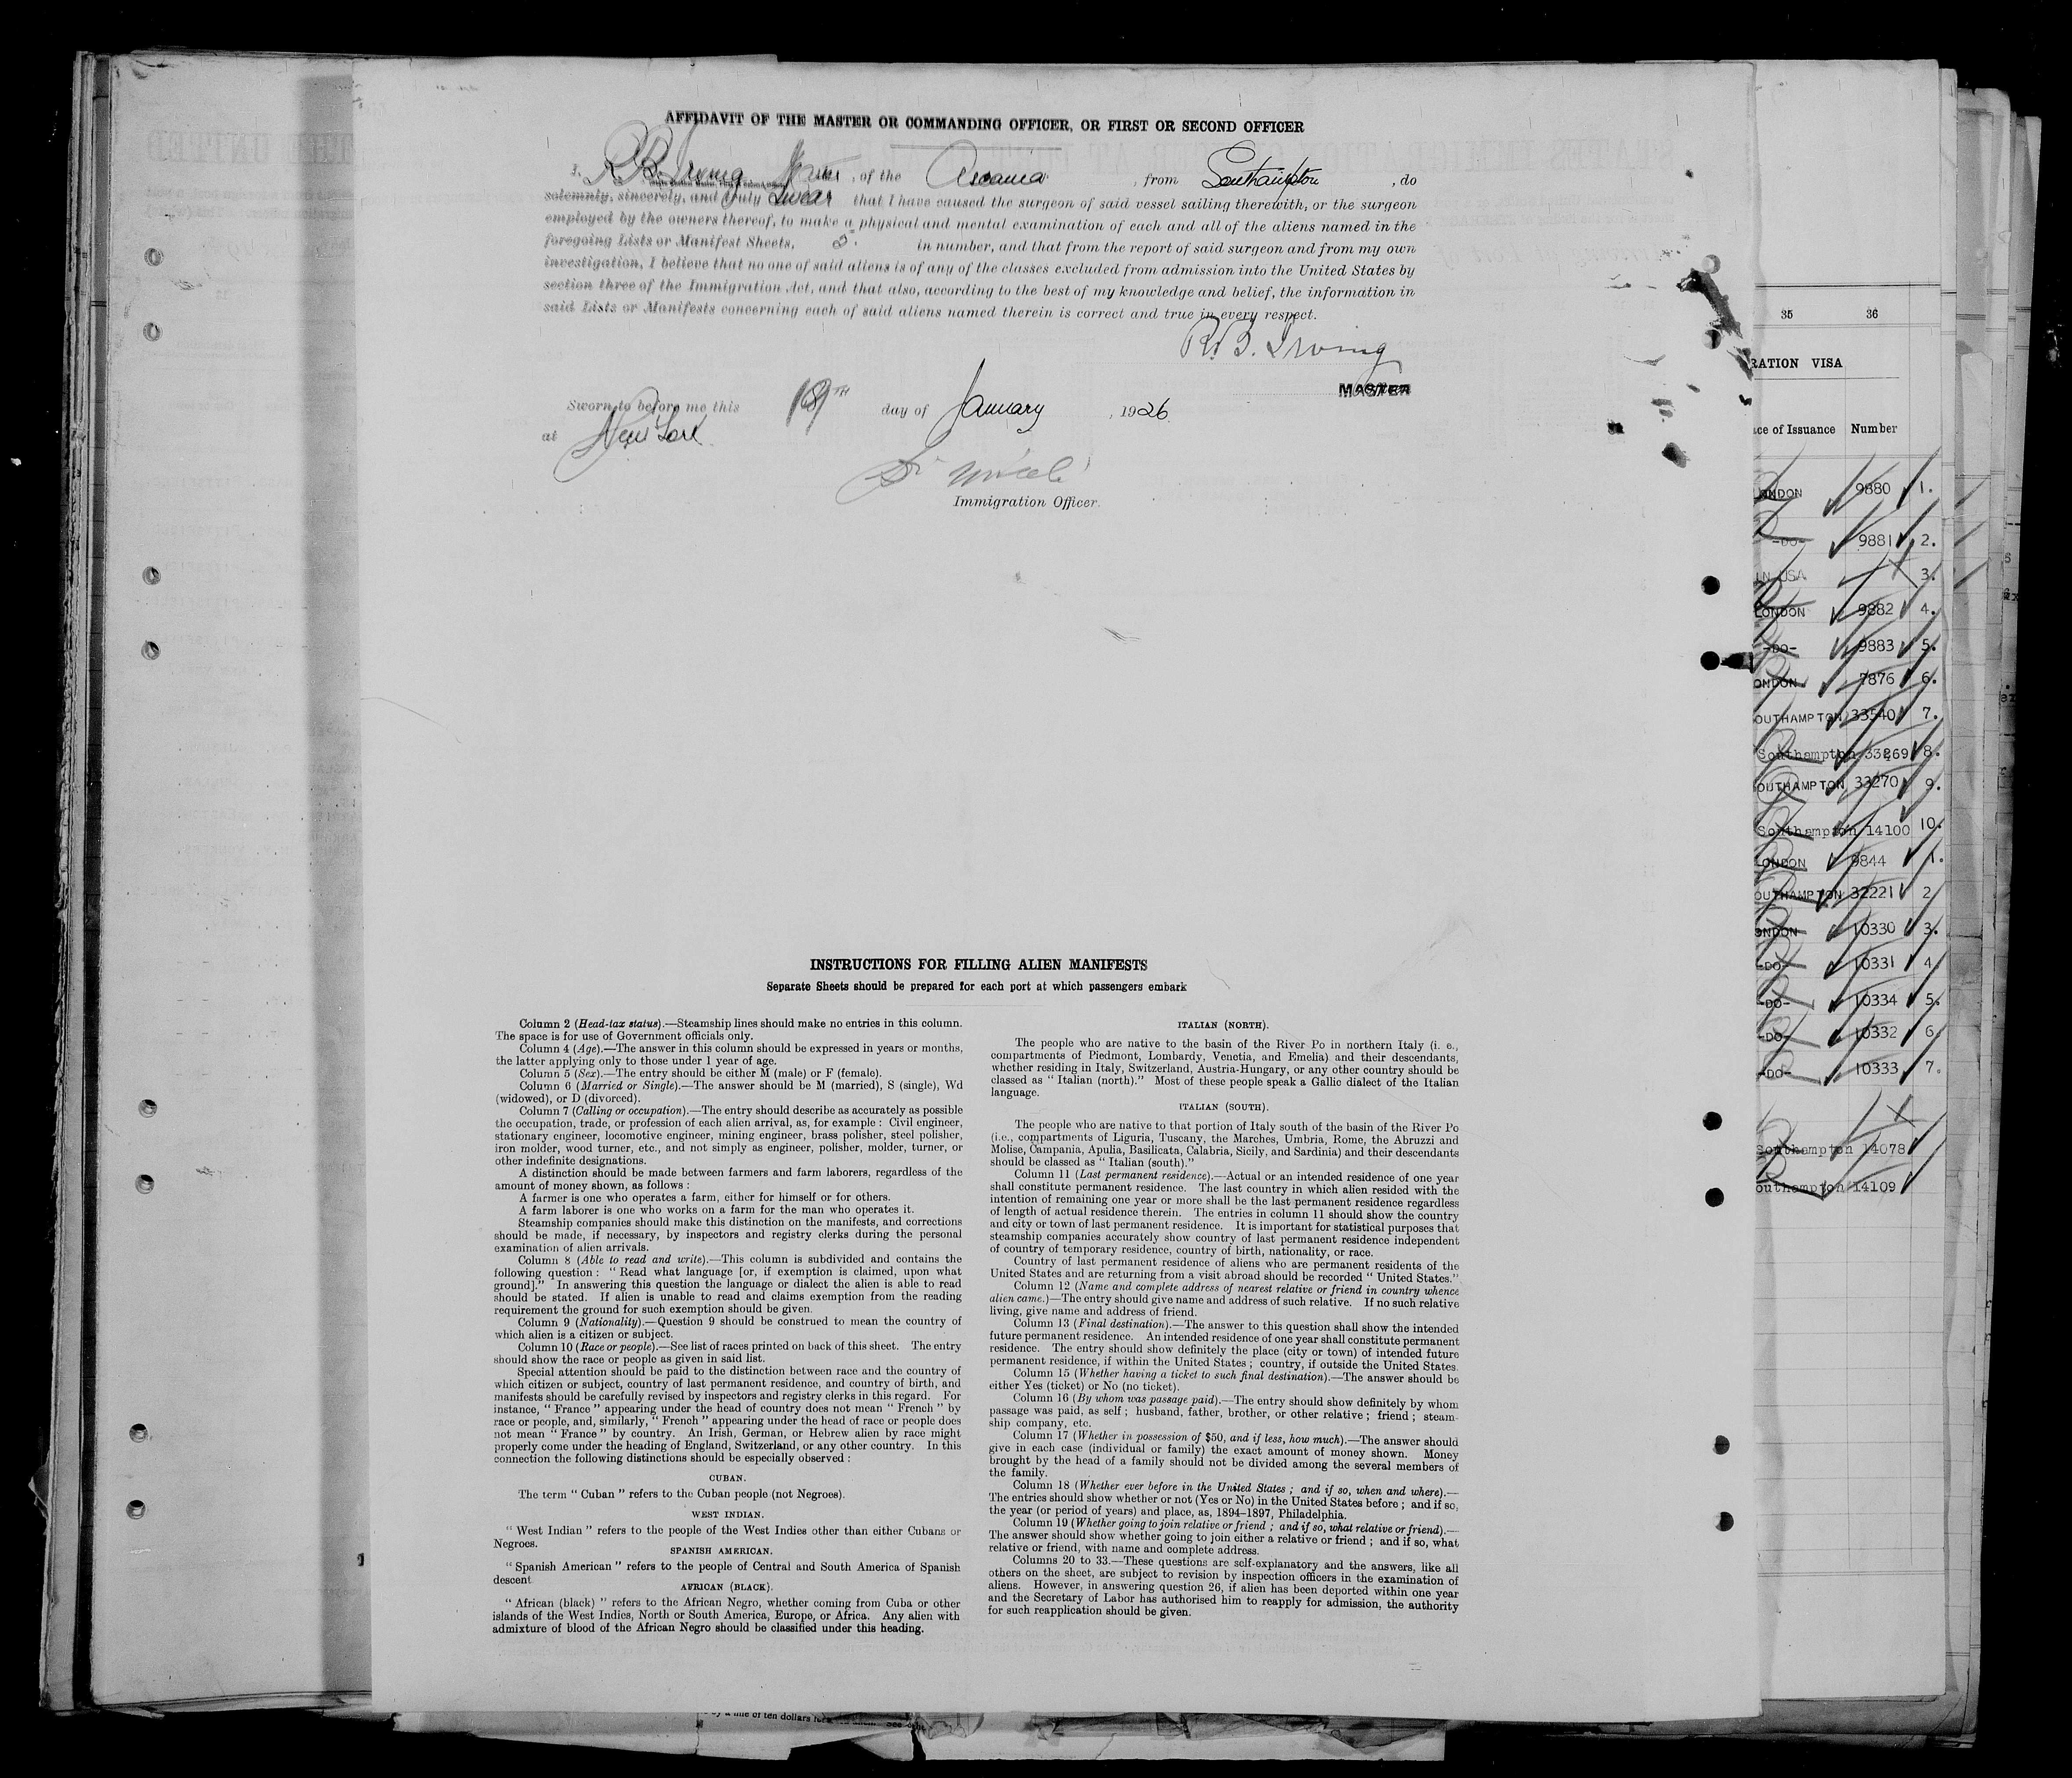 AFFIDAVIT OF THE MASTER OR COMMANDING OFFICER, OR FIRST OR SECOND OFFICER
I, R.B. Irving Master, of the Ascania, from Southampton, do
solemnly, sincerely, and truly Swear that I have caused the surgeon of said vessel sailing therewith, or the surgeon
employed by the owners thereof, to make a physical and mental examination of each and all of the aliens named in the
foregoing Lists or Manifest Sheets, 5. in number, and that from the report of said surgeon and from my own
investigation, I believe that no one of said aliens is of any of the classes excluded from admission into the United States by
section three of the Immigration Act, and that also, according to the best of my knowledge and belief, the information in
said Lists or Manifests concerning each of said aliens named therein is correct and true in every respect.
R. B. Irving
MASTER
Sworn to before me this TH day of January, 1926
at New York
Immigration Officer.
INSTRUCTIONS FOR FILLING ALIEN MANIFESTS
Separate Sheets should be prepared for each port at which passengers embark
Column 2 (Head-tax status).—Steamship lines should make no entries in this column.
The space is for use of Government officials only.
Column 4 (Age).—The answer in this column should be expressed in years or months,
the latter applying only to those under 1 year of age.
Column 5 (Sex).—The entry should be either M (male) or F (female).
Column 6 (Married or Single).—The answer should be M (married), S (single), Wd
(widowed), or D (divorced).
Column 7 (Calling or occupation).—The entry should describe as accurately as possible
the occupation, trade, or profession of each alien arrival, as, for example : Civil engineer,
stationary engineer, locomotive engineer, mining engineer, brass polisher, steel polisher,
iron molder, wood turner, etc., and not simply as engineer, polisher, molder, turner, or
other indefinite designations.
A distinction should be made between farmers and farm laborers, regardless of the
amount of money shown, as follows :
A farmer is one who operates a farm, either for himself or for others.
A farm laborer is one who works on a farm for the man who operates it.
Steamship companies should make this distinction on the manifests, and corrections
should be made, if necessary, by inspectors and registry clerks during the personal
examination of alien arrivals.
Column 8 (Able to read and write).—This column is subdivided and contains the
following question : " Read what language [or, if exemption is claimed, upon what
ground]." In answering this question the language or dialect the alien is able to read
should be stated. If alien is unable to read and claims exemption from the reading
requirement the ground for such exemption should be given.
Column 9 (Nationality).—Question 9 should be construed to mean the country of
which alien is a citizen or subject.
Column 10 (Race or people).—See list of races printed on back of this sheet. The entry
should show the race or people as given in said list.
Special attention should be paid to the distinction between race and the country of
which citizen or subject, country of last permanent residence, and country of birth, and
manifests should be carefully revised by inspectors and registry clerks in this regard. For
instance, " France " appearing under the head of country does not mean " French " by
race or people, and, similarly, " French " appearing under the head of race or people does
not mean " France " by country. An Irish, German, or Hebrew alien by race might
properly come under the heading of England, Switzerland, or any other country. In this
connection the following distinctions should be especially observed :
CUBAN.
The term " Cuban " refers to the Cuban people (not Negroes).
WEST INDIAN.
" West Indian " refers to the people of the West Indies other than either Cubans or
Negroes.
SPANISH AMERICAN.
" Spanish American " refers to the people of Central and South America of Spanish
descent
AFRICAN (BLACK).
" African (black) " refers to the African Negro, whether coming from Cuba or other
islands of the West Indies, North or South America, Europe, or Africa. Any alien with
admixture of blood of the African Negro should be classified under this heading.
ITALIAN (NORTH).
The people who are native to the basin of the River Po in northern Italy (i. e.,
compartments of Piedmont, Lombardy, Venetia, and Emelia) and their descendants,
whether residing in Italy, Switzerland, Austria-Hungary, or any other country should be
classed as " Italian (north)." Most of these people speak a Gallic dialect of the Italian
language.
ITALIAN (SOUTH).
The people who are native to that portion of Italy south of the basin of the River Po
(i.e., compartments of Liguria, Tuscany, the Marches, Umbria, Rome, the Abruzzi and
Molise, Campania, Apulia, Basilicata, Calabria, Sicily, and Sardinia) and their descendants
should be classed as " Italian (south)."
Column 11 (Last permanent residence).—Actual or an intended residence of one year
shall constitute permanent residence. The last country in which alien resided with the
intention of remaining one year or more shall be the last permanent residence regardless
of length of actual residence therein. The entries in column 11 should show the country
and city or town of last permanent residence. It is important for statistical purposes that
steamship companies accurately show country of last permanent residence independent
of country of temporary residence, country of birth, nationality, or race.
Country of last permanent residence of aliens who are permanent residents of the
United States and are returning from a visit abroad should be recorded " United States."
Column 12 (Name and complete address of nearest relative or friend in country whence
alien came.)—The entry should give name and address of such relative. If no such relative
living, give name and address of friend.
Column 13 (Final destination).—The answer to this question shall show the intended
future permanent residence. An intended residence of one year shall constitute permanent
residence. The entry should show definitely the place (city or town) of intended future
permanent residence, if within the United States ; country, if outside the United States.
Column 15 (Whether having a ticket to such final destination).—The answer should be
either Yes (ticket) or No (no ticket).
Column 16 (By whom was passage paid).—The entry should show definitely by whom
passage was paid, as self ; husband, father, brother, or other relative ; friend ; steam-
ship company, etc.
Column 17 (Whether in possession of $50, and if less, how much).—The answer should
give in each case (individual or family) the exact amount of money shown. Money
brought by the head of a family should not be divided among the several members of
the family.
Column 18 (Whether ever before in the United States ; and if so, when and where).—
The entries should show whether or not (Yes or No) in the United States before ; and if so,
the year (or period of years) and place, as, 1894–1897, Philadelphia.
Column 19 (Whether going to join relative or friend ; and if so, what relative or friend).—
The answer should show whether going to join either a relative or friend ; and if so, what
relative or friend, with name and complete address.
Columns 20 to 33.—These questions are self-explanatory and the answers, like all
others on the sheet, are subject to revision by inspection officers in the examination of
aliens. However, in answering question 26, if alien has been deported within one year
and the Secretary of Labor has authorised him to reapply for admission, the authority
for such reapplication should be given.
35 36
RATION VISA
ce of Issuance Number
LONDON 9880 1.
-DO- 9881 2.
IN USA 3.
LONDON 9882 4.
-DO- 9883 5.
ONDON 7876 6.
OUTHAMPTON 33540 7.
Southampton 33269 8.
OUTHAMPTON 33270 9.
Southampton 14100 10.
LONDON 9844 1.
OUTHAMPTON 32221 2
ONDON 10330 3.
-DO- 10331 4
-DO- 10334 5.
-DO- 10332 6
-DO- 10333 7.
Southampton 14078
outhampton 14109